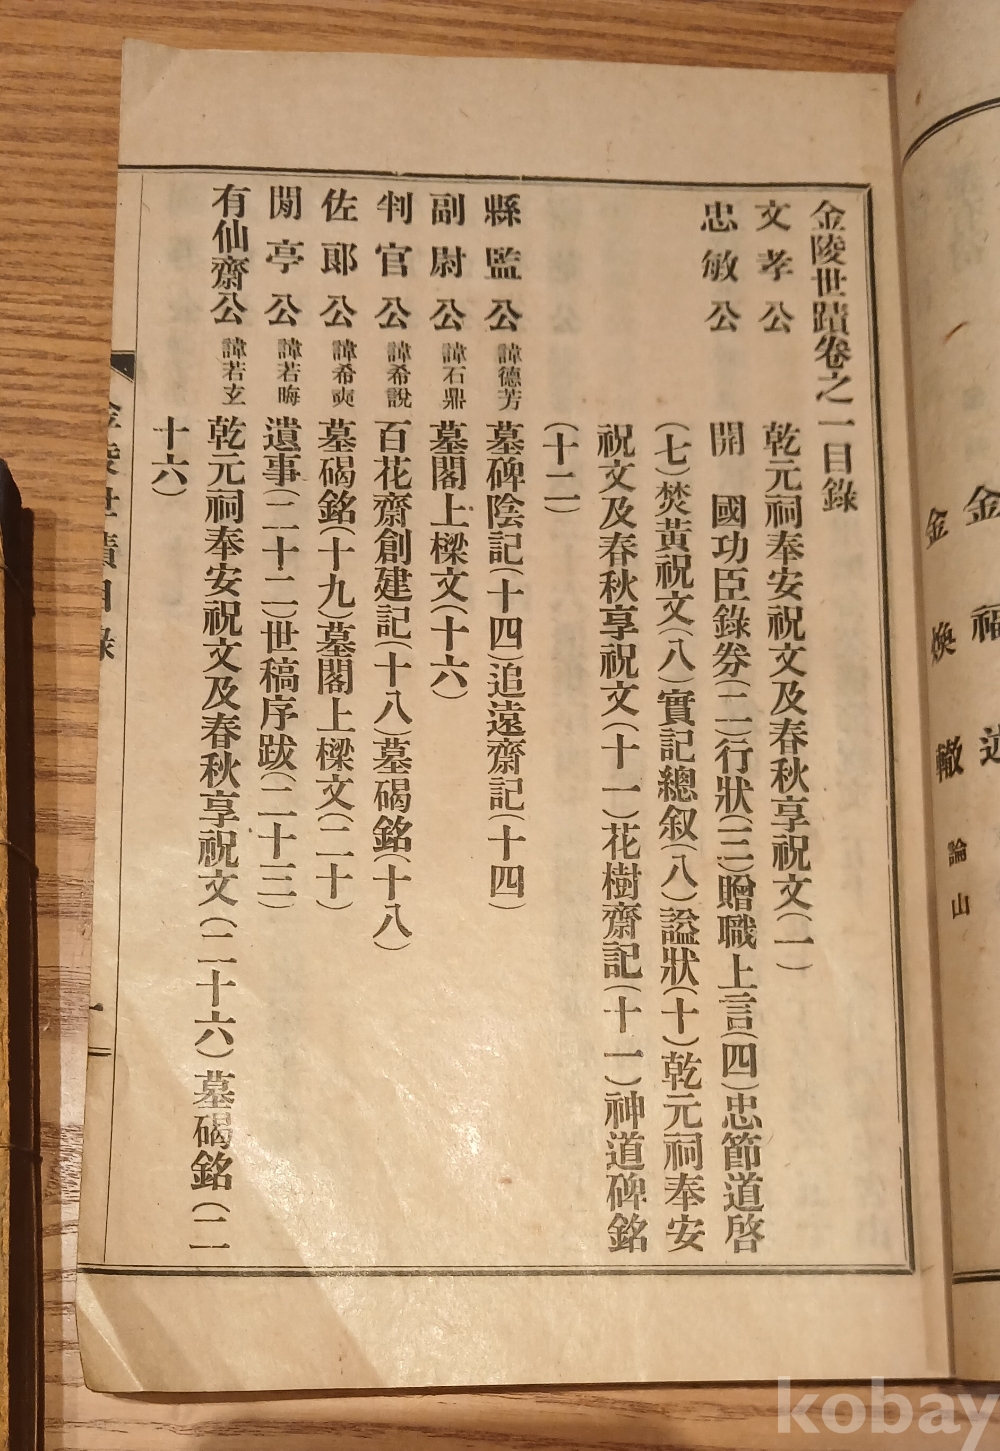 金福
金煥轍 論山
金陵世蹟卷之一目錄
文孝公 乾元祠奉安祝文及春秋享祝文(一)
忠敏公 開 國功臣錄券(二)行狀(三)贈職上言(四)忠節道啓
(七)焚黃祝文(八)實記總叙(八)謚狀(十)乾元祠奉安
祝文及春秋享祝文(十一)花樹齋記(十一)神道碑銘
(十二)
縣監公 諱德芳 墓碑陰記(十四)追遠齋記(十四)
副尉公 諱石鼎 墓閣上樑文(十六)
判官公 諱希說 百花齋創建記(十八)墓碣銘(十八)
佐郎公 諱希奭 墓碣銘(十九)墓閣上樑文(二十)
閒亭公 諱若晦 遺事(二十二)世稿序跋(二十三)
有仙齋公 諱若玄 乾元祠奉安祝文及春秋享祝文(二十六)墓碣銘(二
十六)
金陵世蹟目錄
一
kobay